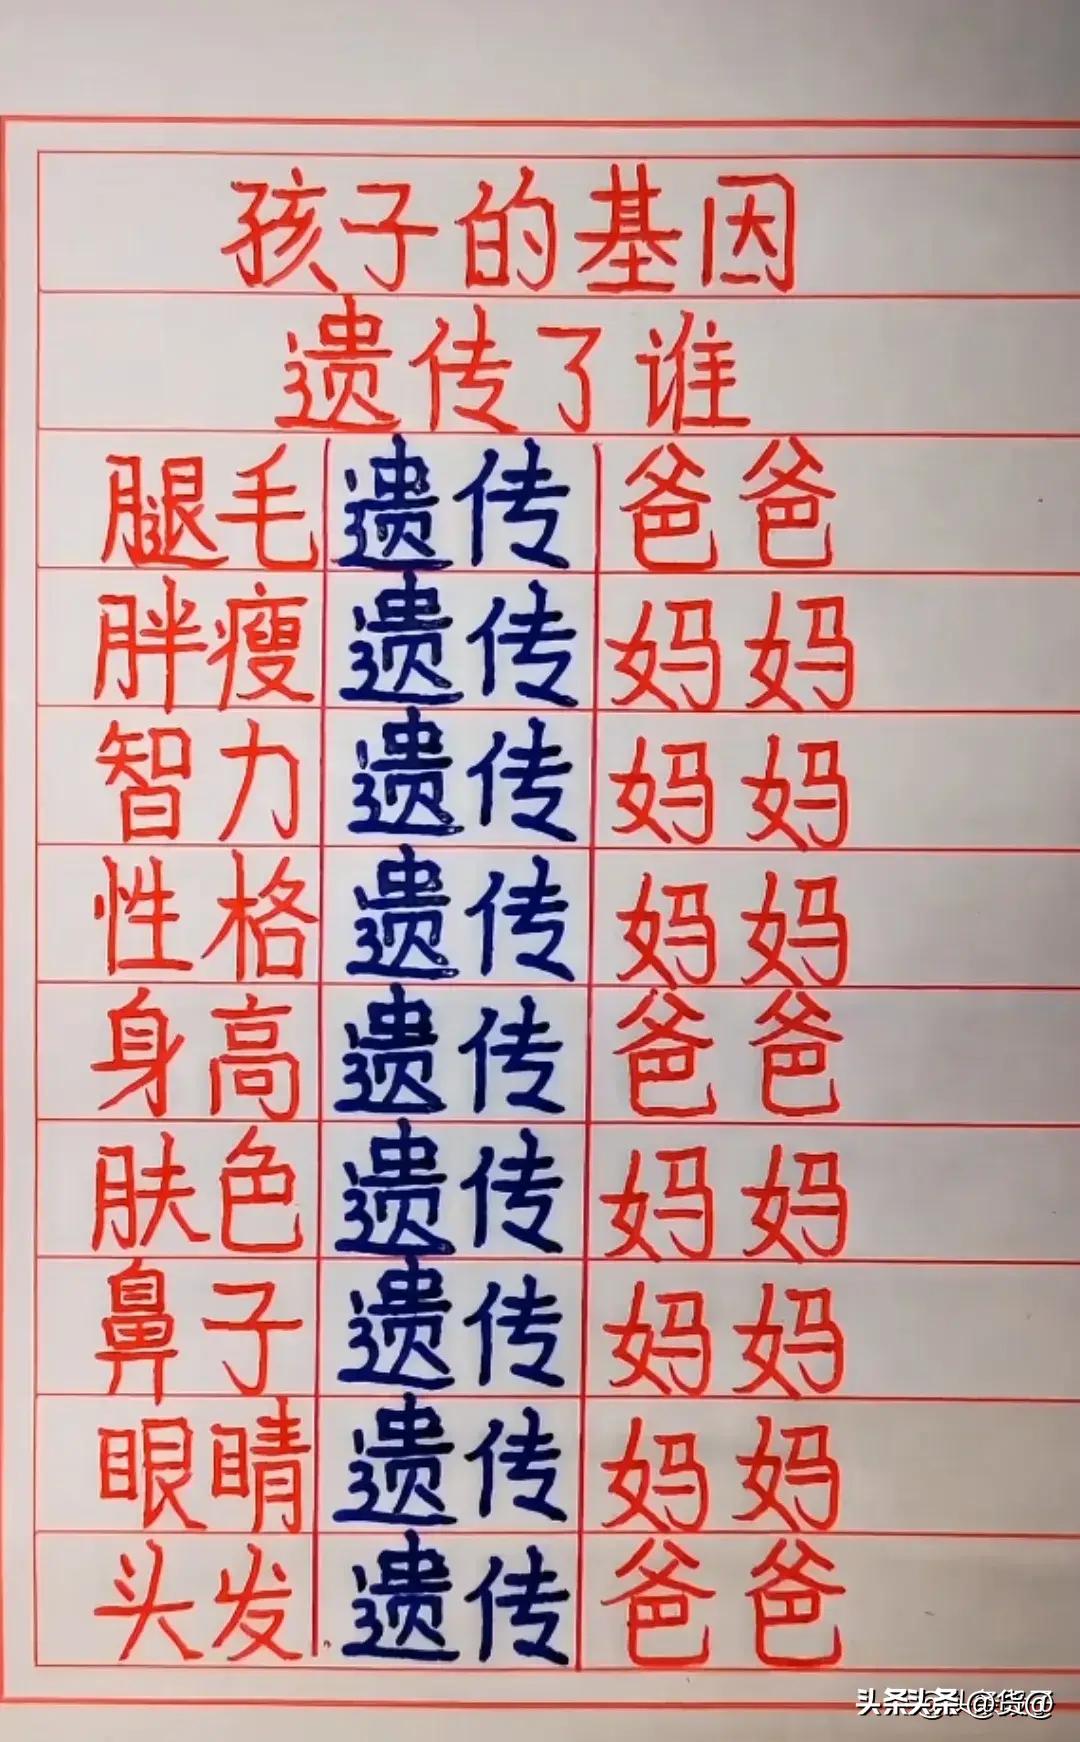 孩子的基因
遗传了谁
腿毛 遗传 爸爸
胖瘦 遗传 妈妈
智力 遗传 妈妈
性格 遗传 妈妈
身高 遗传 爸爸
肤色 遗传 妈妈
鼻子 遗传 妈妈
眼睛 遗传 妈妈
头发 遗传 爸爸
头条头条 @货@